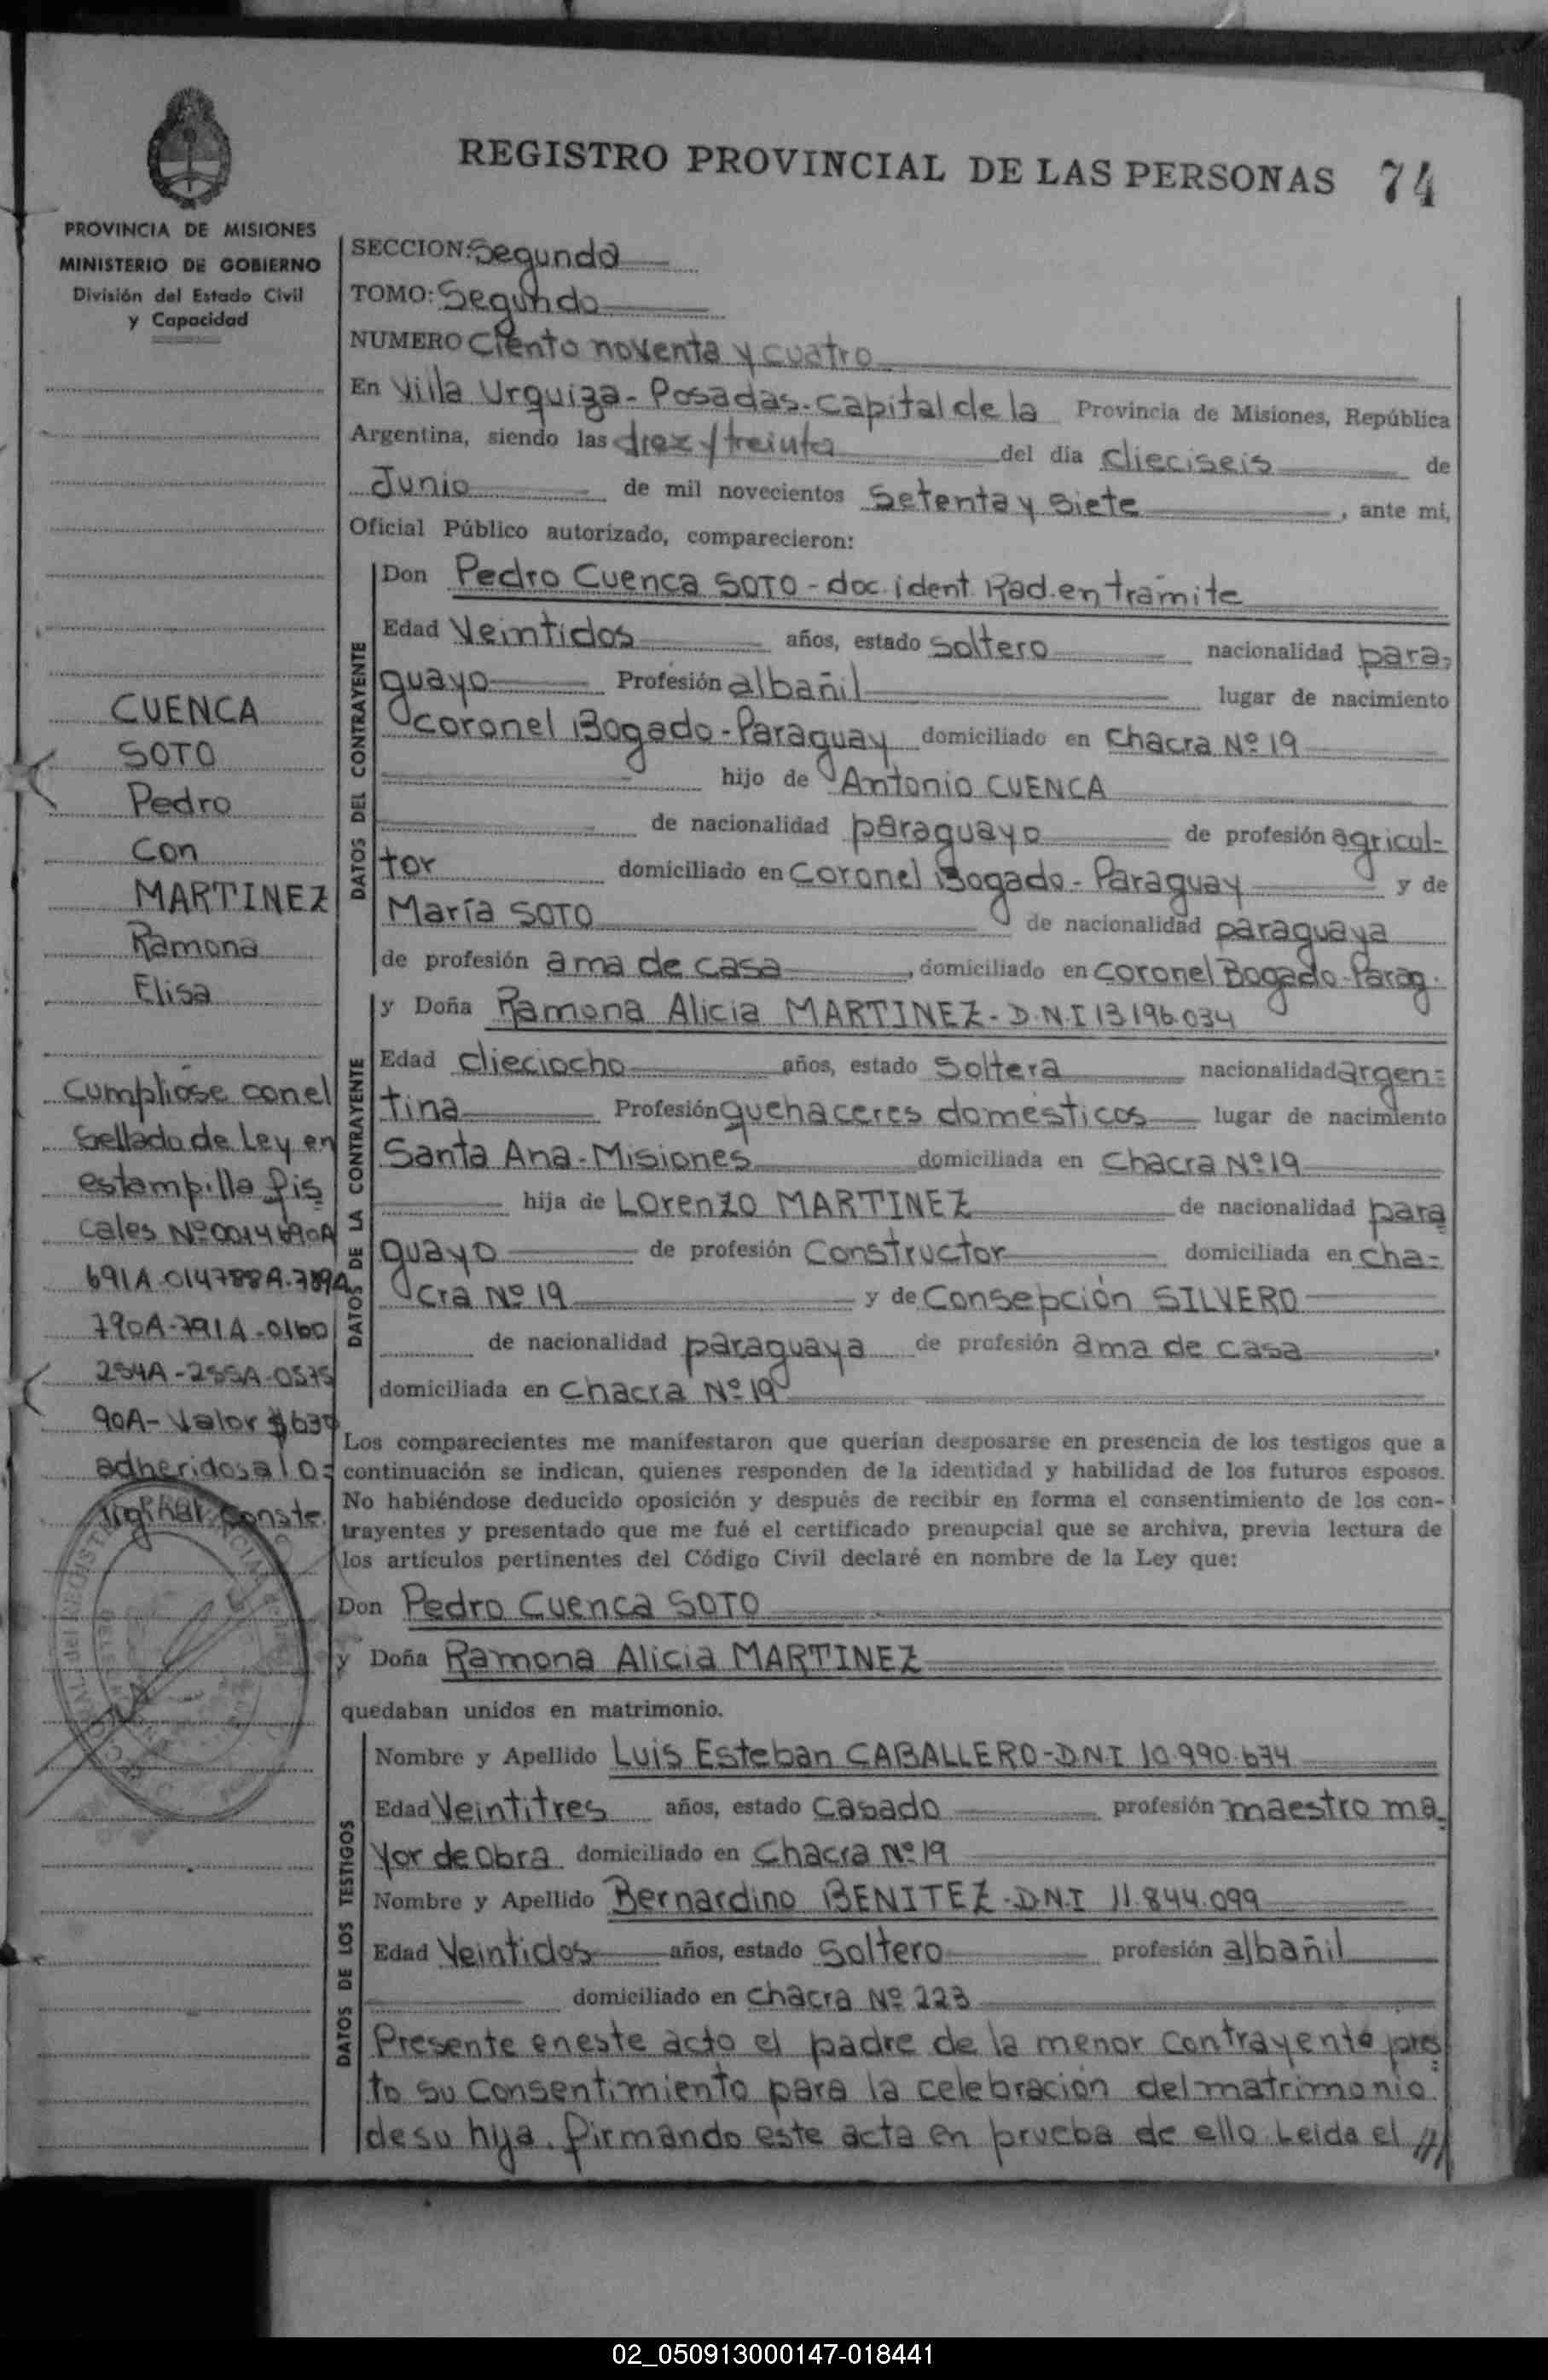 REGISTRO PROVINCIAL DE LAS PERSONAS 74
PROVINCIA DE MISIONES
MINISTERIO DE GOBIERNO
División del Estado Civil
y Capacidad
CUENCA
SOTO
Pedro
Con
MARTINEZ
Ramona
Elisa
Cumplióse con el
Sellado de Ley en
estampilla fis
cales Nº 0014690A
691A-014788A-789A
790A-791A-0160
254A-255A-0575
90A- Valor $630
adheridos al o=
riginal. Conste.
SECCION: Segunda
TOMO: Segundo
NUMERO Ciento noventa y cuatro
En Villa Urquiza - Posadas - Capital de la Provincia de Misiones, República
Argentina, siendo las diez y treinta del día dieciseis de
Junio de mil novecientos Setenta y Siete, ante mi,
Oficial Público autorizado, comparecieron:
DATOS DEL CONTRAYENTE
Don Pedro Cuenca SOTO - doc. ident. Rad. en trámite
Edad Veintidos años, estado Soltero nacionalidad para=
guayo Profesión albañil lugar de nacimiento
Coronel Bogado - Paraguay domiciliado en Chacra Nº 19
hijo de Antonio CUENCA
de nacionalidad paraguayo de profesión agricul=
tor domiciliado en Coronel Bogado - Paraguay y de
María SOTO de nacionalidad paraguaya
de profesión ama de casa, domiciliado en Coronel Bogado - Parag.
DATOS DE LA CONTRAYENTE
y Doña Ramona Alicia MARTINEZ - D.N.I 13.196.034
Edad dieciocho años, estado Soltera nacionalidad argen=
tina Profesión quehaceres domésticos lugar de nacimiento
Santa Ana - Misiones domiciliada en Chacra Nº 19
hija de Lorenzo MARTINEZ de nacionalidad para
guayo de profesión Constructor domiciliada en Cha=
cra Nº 19 y de Consepción SILVERO
de nacionalidad paraguaya de profesión ama de casa,
domiciliada en Chacra Nº 19
Los comparecientes me manifestaron que querían desposarse en presencia de los testigos que a
continuación se indican, quienes responden de la identidad y habilidad de los futuros esposos.
No habiéndose deducido oposición y después de recibir en forma el consentimiento de los con-
trayentes y presentado que me fué el certificado prenupcial que se archiva, previa lectura de
los artículos pertinentes del Código Civil declaré en nombre de la Ley que:
Don Pedro Cuenca SOTO
y Doña Ramona Alicia MARTINEZ
quedaban unidos en matrimonio.
DATOS DE LOS TESTIGOS
Nombre y Apellido Luis Esteban CABALLERO - D.N.I 10.990.674
Edad Veintitres años, estado Casado profesión maestro ma=
yor de obra domiciliado en Chacra Nº 19
Nombre y Apellido Bernardino BENITEZ - D.N.I 11.844.099
Edad Veintidos años, estado Soltero profesión albañil
domiciliado en Chacra Nº 223
Presente en este acto el padre de la menor Contrayente pres=
to su consentimiento para la celebración del matrimonio
de su hija. firmando este acta en prueba de ello. Leida el ///
02_050913000147-018441